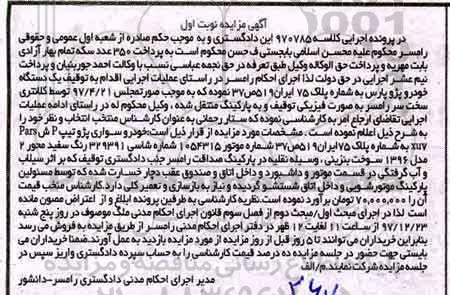 آگهی مزایده نوبت اول
در پرونده اجرایی کلاسه ۹۷۰۷۸۵ این دادگستری و به موجب حکم صادره از شعبه اول عمومی و حقوقی
رامسر محکوم علیه محسن اسلامی بابجستی ف حسن محکوم است به پرداخت ۳۵۰ عدد سکه تمام بهار آزادی
بابت مهریه و پرداخت حق الوکاله وکیل طبق تعرفه در حق نجمه عباسی نسب با وکالت احمد جوربنیان و پرداخت
نیم عشر اجرایی در حق دولت لذا اجرای احکام رامسر در راستای عملیات اجرایی اقدام به توقیف یک دستگاه
خودرو پژو پارس به شماره پلاک ۷۵ ایران۵۱۹ص۳۷ نموده که به موجب صورتمجلس ۹۷/۴/۲۱ توسط کلانتری
سخت سر رامسر به صورت فیزیکی توقیف و به پارکینگ منتقل شده ، وکیل محکوم له در راستای ادامه عملیات
اجرایی تقاضای ارجاع امر به کارشناسی نموده که ستار رحمانی به عنوان کارشناس منتخب انتخاب و نظر خود را
به شرح ذیل اعلام نموده است . مشخصات مورد مزایده از قرار ذیل است:خودرو سواری پژو تیپ Pars ش P
xu۷ به شماره پلاک ۷۵ایران۵۱۹ص۳۷ شماره موتور ۱۰۵۴۳۱۵ شماره شاسی ۳۲۹۳۹۱ رنگ سفید محور ۲
مدل ۱۳۹۶ سوخت بنزینی . وسیله نقلیه در پارکینگ صداقت رامسر جنب دادگستری توقیف که بر اثر سیلاب
و آب گرفتگی در قسمت موتور و داشبورد و داخل اتاق و صندوق عقب دچار خسارت شده که توسط مسئولین
پارکینگ موتورشویی و داخل اتاق شستشو گردیده و نیاز به بازسازی و تعمیر کلی دارد.کارشناس منخب قیمت
آن را ۷۰,۰۰۰,۰۰۰ تومان برآورد نموده است.نظریه کارشناسی به طرفین پرونده ابلاغ و از اعتراض مصون مانده
است لذا در اجرای مبحث اول/مبحث دوم از فصل سوم قانون اجرای احکام مدنی ملک موصوف در روز پنج شنبه
۹۷/۱۲/۲۳ از ساعت ۱۱ لغایت ۱۲ ظهر در دفتر اجرای احکام مدنی رامسر از طریق مزایده به فروش می رسد
بنابراین خریداران می توانند تا ۵ روز قبل از روز مزایده از مورد مزایده بازدید به عمل آورند.ضمنا خریداران می
بایستی جهت حضور در جلسه مزایده ده درصد قیمت کارشناسی را به حساب سپرده دادگستری واریز سپس در
جلسه مزایده شرکت نمایند.م/الف
مدیر اجرای احکام مدنی دادگستری رامسر-دانشور